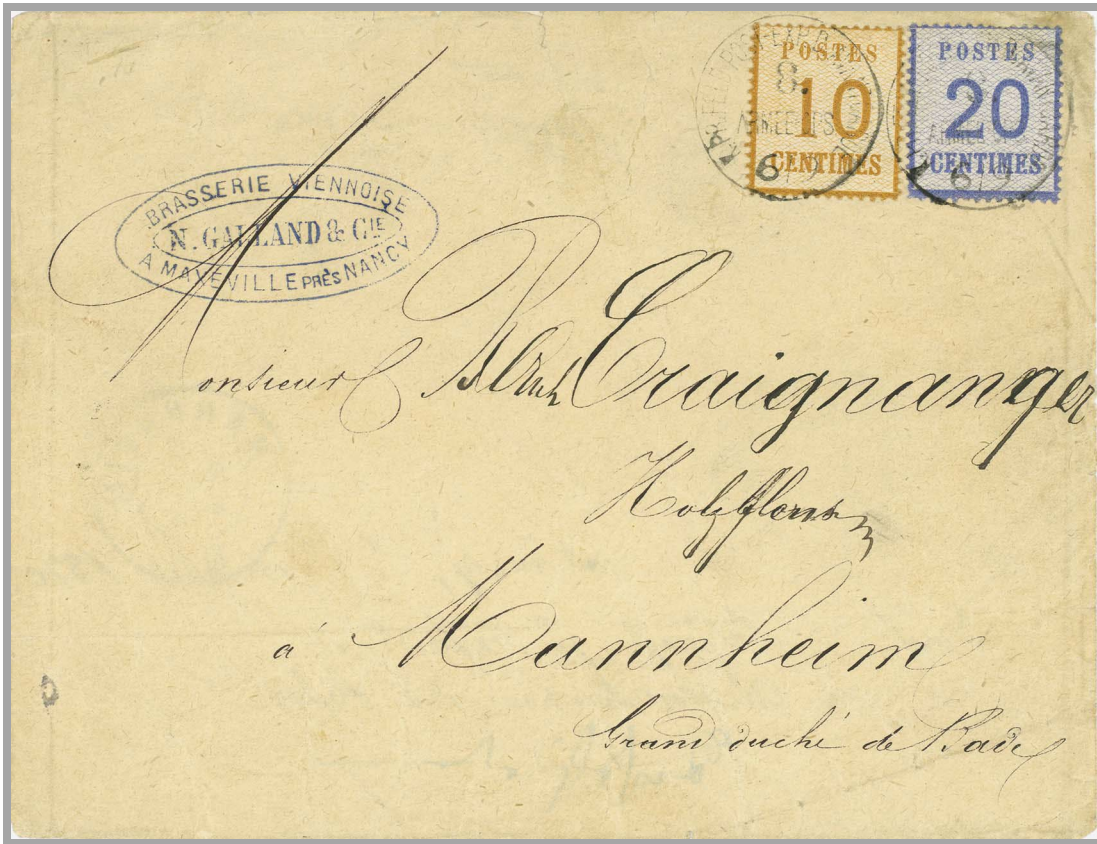 POSTES
10
CENTIMES
POSTES
20
CENTIMES
BRASSERIE VIENNOISE
N. GALLAND & CIE
A MAXEVILLE PRÈS NANCY
Monsieur
Traignanger
à Mannheim
Grand duché de Bade